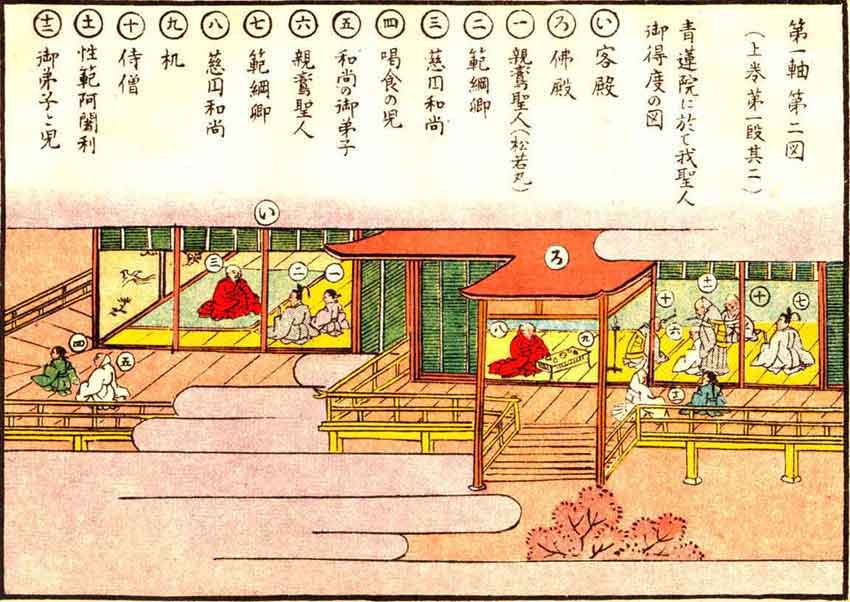 第一軸 第二図
(上巻第一段其二)
青蓮院に於て我聖人
御得度の図
い 客殿
ろ 佛殿
一 親鸞聖人(松若丸)
二 範綱卿
三 慈円和尚
四 喝食の児
五 和尚の御弟子
六 親鸞聖人
七 範綱卿
八 慈円和尚
九 机
十 侍僧
土 性範阿闍利
士 御弟子と児
い
三
二
一
四
五
ろ
八
九
十
六
土
十
七